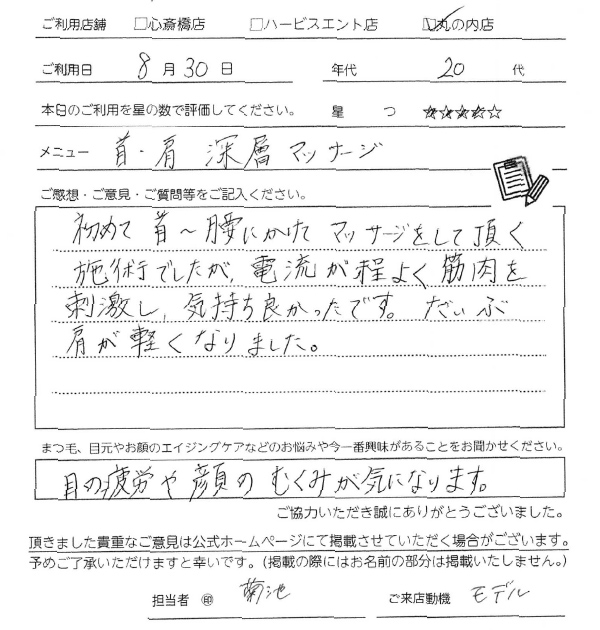 ご利用店舗 □心斎橋店 □ハービスエント店 ☑丸の内店
ご利用日 8月30日 年代 20代
本日のご利用を星の数で評価してください。 星 つ ☆☆☆☆☆
メニュー 首・肩 深層マッサージ
ご感想・ご意見・ご質問等をご記入ください。
初めて首〜腰にかけてマッサージをして頂く
施術でしたが、電流が程よく筋肉を
刺激し、気持ち良かったです。だいぶ
肩が軽くなりました。
まつ毛、目元やお顔のエイジングケアなどのお悩みや今一番興味があることをお聞かせください。
目の疲労や顔のむくみが気になります。
ご協力いただき誠にありがとうございました。
頂きました貴重なご意見は公式ホームページにて掲載させていただく場合がございます。
予めご了承いただけますと幸いです。(掲載の際にはお名前の部分は掲載いたしません。)
担当者 ㊞ 菊池 ご来店動機 モデル